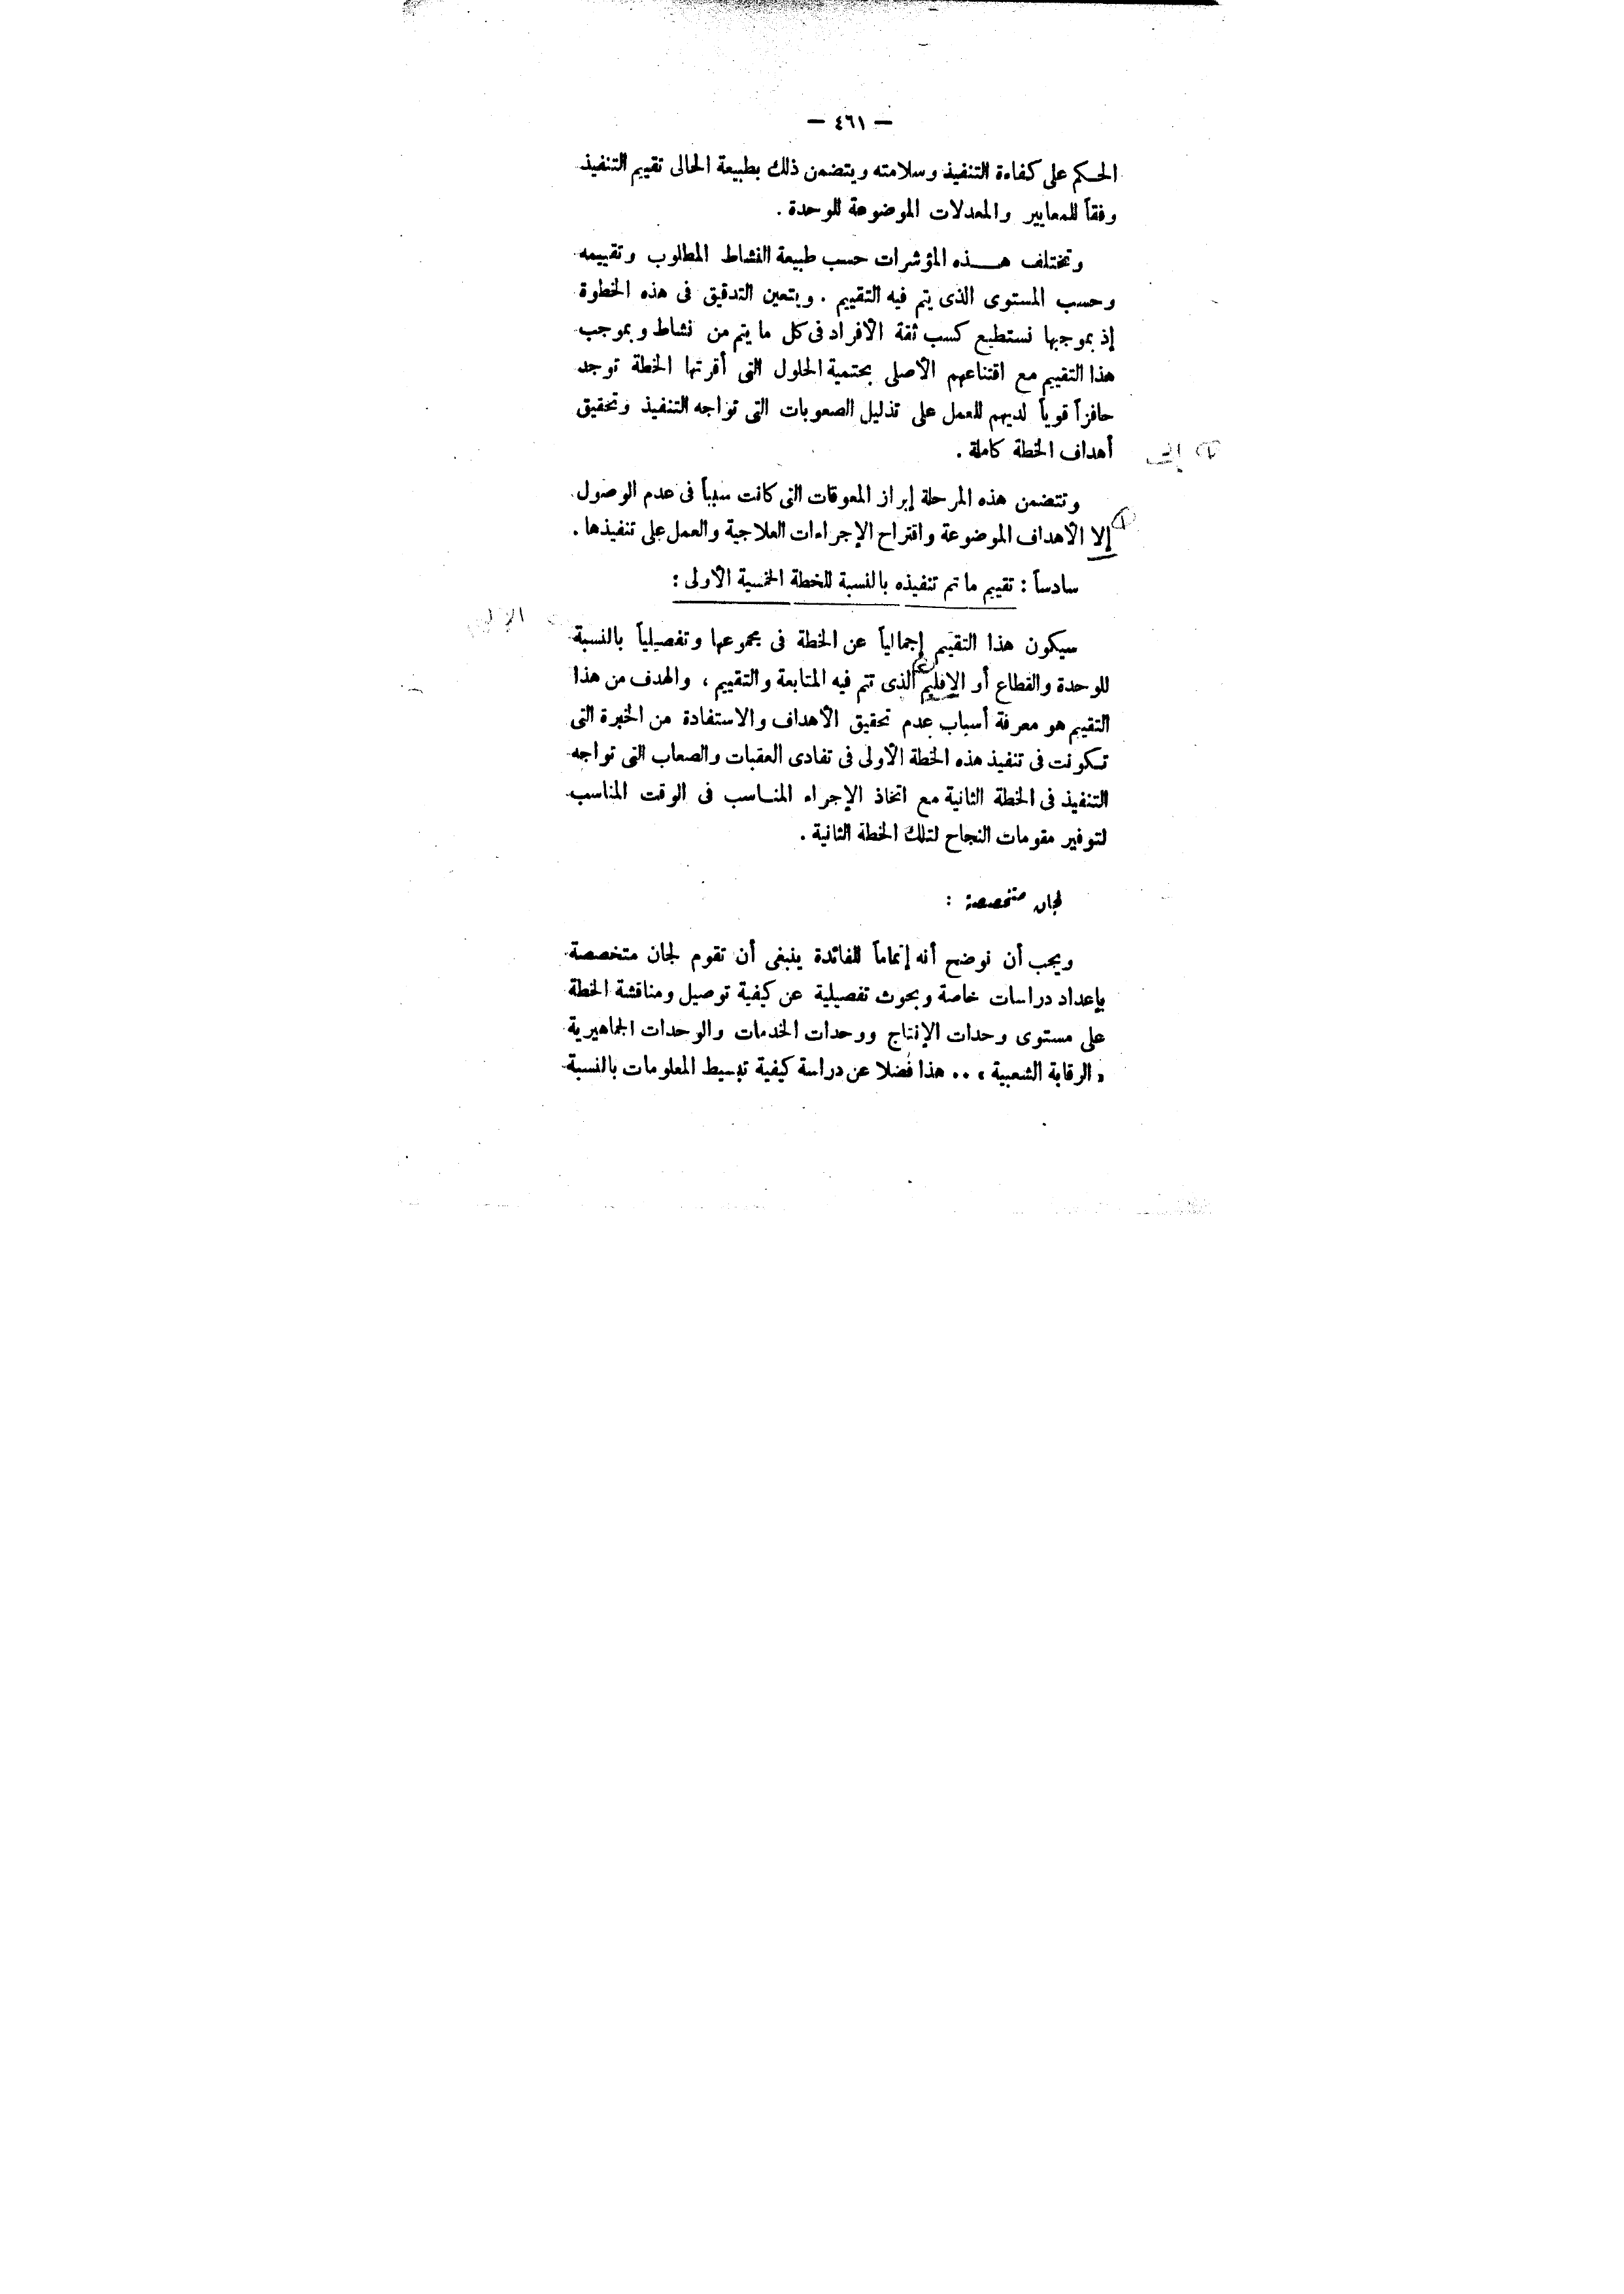 — ٤٦١ —
الحكم على كفاءة التنفيذ وسلامته ويتضمن ذلك بطبيعة الحالى تقييم التنفيذ
وفقاً للمعايير والمعدلات الموضوعة للوحدة .
وتختلف هذه المؤشرات حسب طبيعة النشاط المطلوب وتقييمه
وحسب المستوى الذى يتم فيه التقييم . ويتعين التدقيق فى هذه الخطوة
إذ بموجبها نستطيع كسب ثقة الأفراد فى كل ما يتم من نشاط وبموجب
هذا التقييم مع اقتناعهم الأصلى بحتمية الحلول التى أقرتها الخطة توجد
حافزاً قوياً لديهم للعمل على تذليل الصعوبات التى تواجه التنفيذ وتحقيق
أهداف الخطة كاملة .
وتتضمن هذه المرحلة إبراز المعوقات التى كانت سبباً فى عدم الوصول
إلا الأهداف الموضوعة واقتراح الإجراءات العلاجية والعمل على تنفيذها .
سادساً : تقييم ما تم تنفيذه بالنسبة للخطة الخمسية الأولى :
سيكون هذا التقييم إجمالياً عن الخطة فى مجموعها وتفصيلياً بالنسبة
للوحدة والقطاع أو الإقليم الذى تتم فيه المتابعة والتقييم ، والهدف من هذا
التقييم هو معرفة أسباب عدم تحقيق الأهداف والاستفادة من الخبرة التى
تكونت فى تنفيذ هذه الخطة الأولى فى تفادى العقبات والصعاب التى تواجه
التنفيذ فى الخطة الثانية مع اتخاذ الإجراء المناسب فى الوقت المناسب
لتوفير مقومات النجاح لتلك الخطة الثانية .
لجان متخصصة :
ويجب أن نوضح أنه إتماماً للفائدة ينبغى أن تقوم لجان متخصصة
بإعداد دراسات خاصة وبحوث تفصيلية عن كيفية توصيل ومناقشة الخطة
على مستوى وحدات الإنتاج ووحدات الخدمات والوحدات الجماهيرية
« الرقابة الشعبية » .. هذا فضلا عن دراسة كيفية تبسيط المعلومات بالنسبة